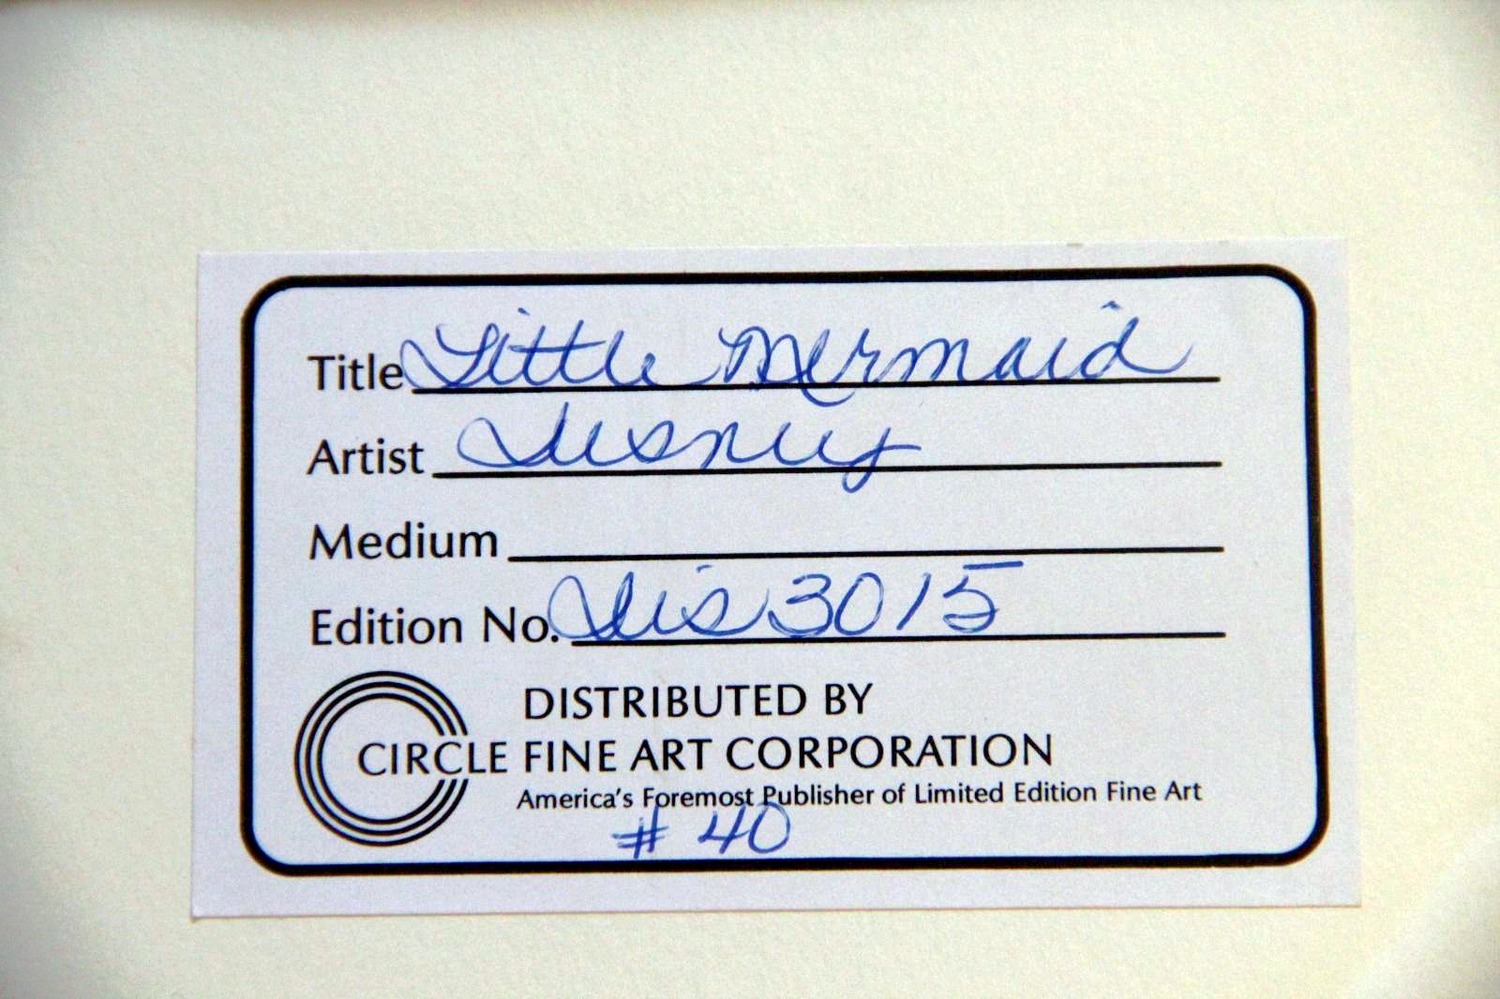 Title Little Mermaid
Artist Disney
Medium
Edition No. Dis 3015
DISTRIBUTED BY
CIRCLE FINE ART CORPORATION
America's Foremost Publisher of Limited Edition Fine Art
# 40